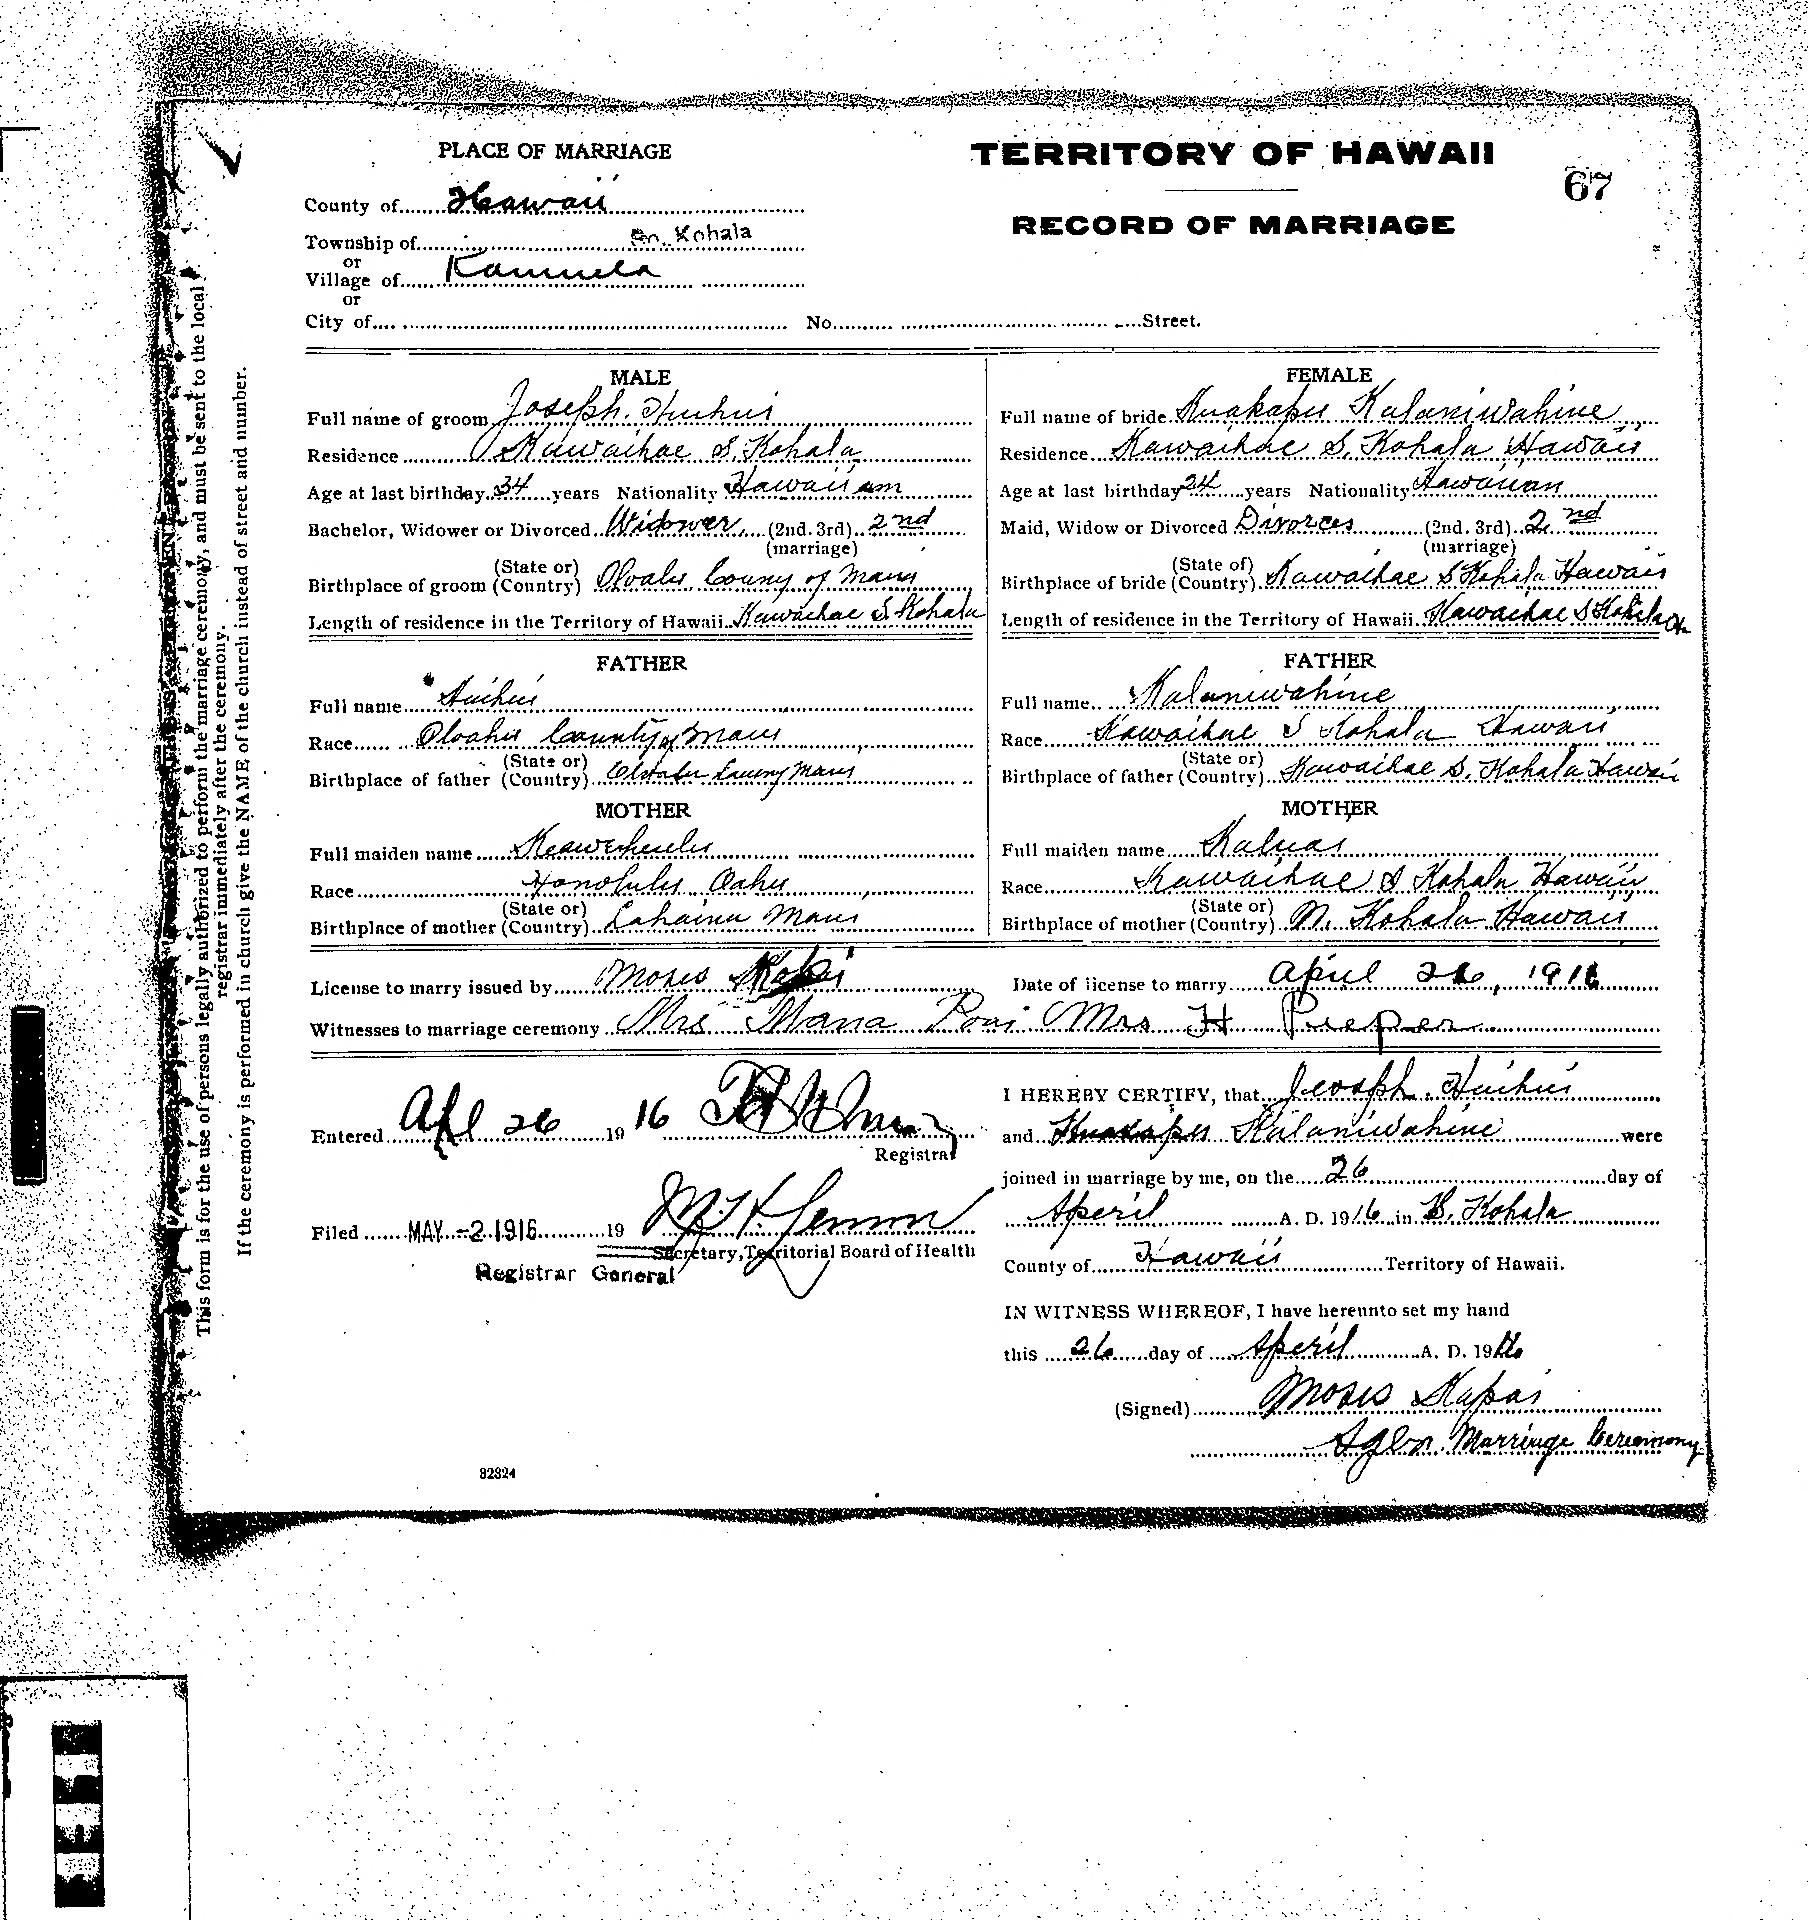 PLACE OF MARRIAGE
TERRITORY OF HAWAII
67
County of Hawaii
RECORD OF MARRIAGE
Township of So. Kohala
or
Village of Kamuela
or
City of No. Street.
MALE
Full name of groom Joseph. Huihui
Residence Kawaihae S. Kohala
Age at last birthday 34 years Nationality Hawaiian
Bachelor, Widower or Divorced Widower (2nd. 3rd) 2nd
(marriage)
Birthplace of groom (State or) (Country) County of Maui
Length of residence in the Territory of Hawaii Kawaihae S. Kohala
FATHER
Full name Huihui
Race County of Maui
Birthplace of father (State or) (Country) Maui
MOTHER
Full maiden name
Race Honolulu Oahu
Birthplace of mother (State or) (Country) Lahaina Maui
FEMALE
Full name of bride Kuakapu Kalaniwahine
Residence Kawaihae S. Kohala Hawaii
Age at last birthday 24 years Nationality Hawaiian
Maid, Widow or Divorced Divorces (2nd. 3rd) 2nd
(marriage)
Birthplace of bride (State of) (Country) Kawaihae S Kohala Hawaii
Length of residence in the Territory of Hawaii Kawaihae S Kohala
FATHER
Full name Kalaniwahine
Race Kawaihae S Kohala Hawaii
Birthplace of father (State or) (Country) Kawaihae S. Kohala Hawaii
MOTHER
Full maiden name Kaluai
Race Kawaihae S Kohala Hawaii
Birthplace of mother (State or) (Country) N. Kohala Hawaii
License to marry issued by Moses Date of license to marry April 26, 1916
Witnesses to marriage ceremony Mrs Maria Poai Mrs H Pieper
Entered Apl 26 1916
Registrar
Filed MAY -2 1916 19
Secretary, Territorial Board of Health
Registrar General
82324
I HEREBY CERTIFY, that Joseph. Huihui
and Kuakapu Kalaniwahine were
joined in marriage by me, on the 26 day of
Aperil A. D. 1916 in S. Kohala
County of Hawaii Territory of Hawaii.
IN WITNESS WHEREOF, I have hereunto set my hand
this 26 day of Aperil A. D. 1916
(Signed) Moses Kapoi
Agen. Marriage Ceremony
This form is for the use of persons legally authorized to perform the marriage ceremony, and must be sent to the local
registrar immediately after the ceremony.
If the ceremony is performed in church give the NAME of the church instead of street and number.